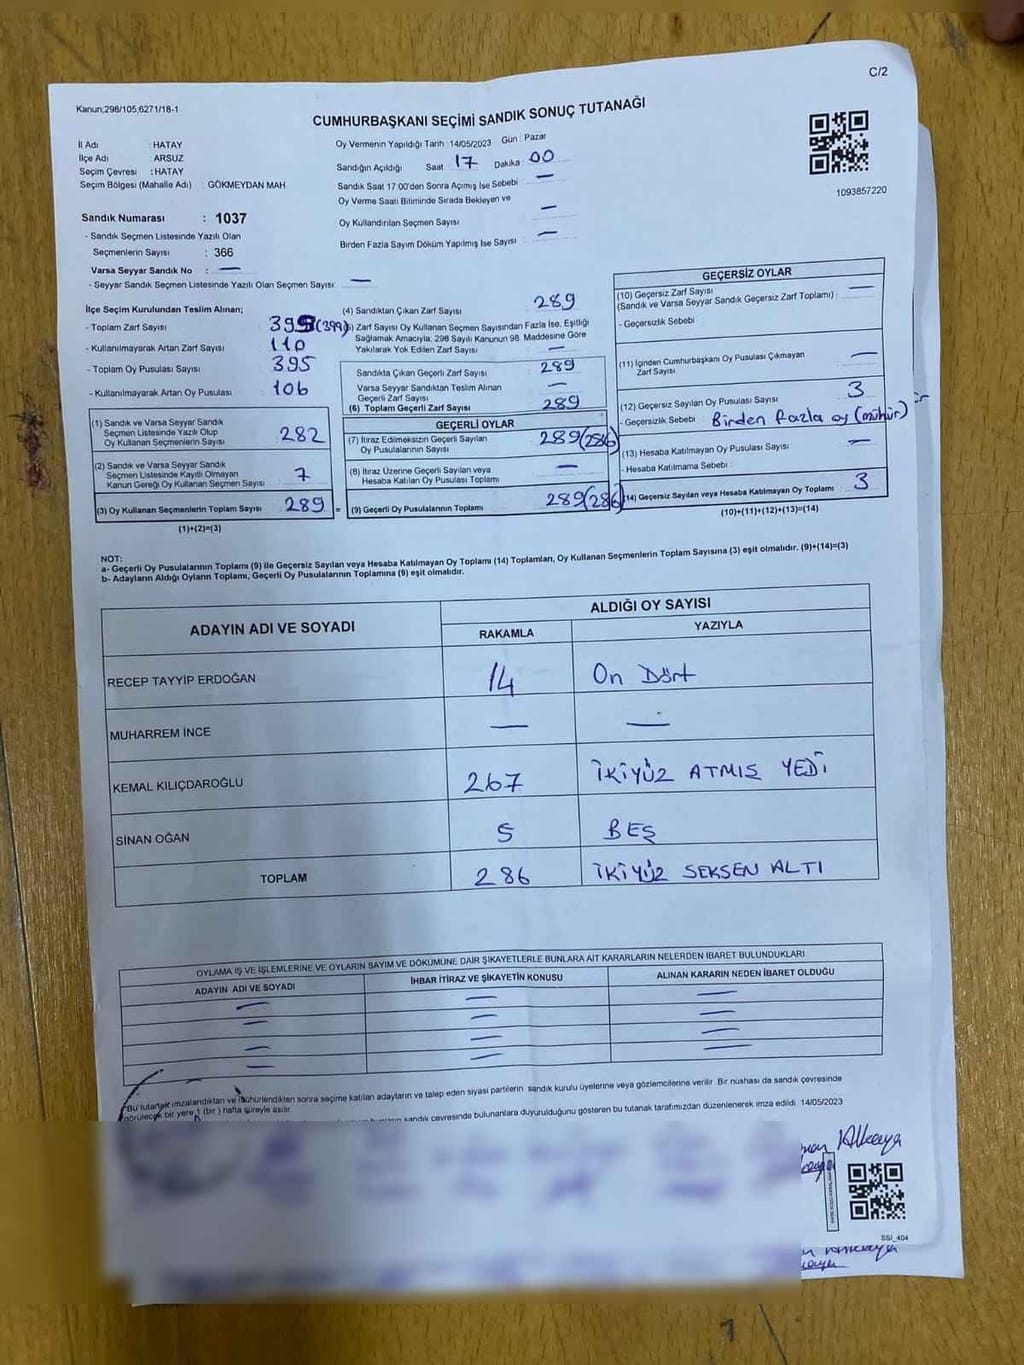 C/2
Kanun;298/105,6271/18-1
CUMHURBAŞKANI SEÇİMİ SANDIK SONUÇ TUTANAĞI
İl Adı : HATAY
İlçe Adı ARSUZ
Seçim Çevresi : HATAY
Seçim Bölgesi (Mahalle Adı) : GÖKMEYDAN MAH
Sandık Numarası : 1037
- Sandık Seçmen Listesinde Yazılı Olan
Seçmenlerin Sayısı : 366
Varsa Seyyar Sandık No : —
- Seyyar Sandık Seçmen Listesinde Yazılı Olan Seçmen Sayısı —
Oy Vermenin Yapıldığı Tarih 14/05/2023 Gün : Pazar
Sandığın Açıldığı Saat 17 Dakika 00
Sandık Saat 17.00'den Sonra Açımış İse Sebebi —
Oy Verme Saati Bitiminde Sırada Bekleyen ve
Oy Kullandırılan Seçmen Sayısı —
Birden Fazla Sayım Döküm Yapılmış İse Sayısı —
1093857220
İlçe Seçim Kurulundan Teslim Alınan;
- Toplam Zarf Sayısı (399)
- Kullanılmayarak Artan Zarf Sayısı 110
- Toplam Oy Pusulası Sayısı 395
- Kullanılmayarak Artan Oy Pusulası 106
(1) Sandık ve Varsa Seyyar Sandık
Seçmen Listesinde Yazılı Olup
Oy Kullanan Seçmenlerin Sayısı 282
(2) Sandık ve Varsa Seyyar Sandık
Seçmen Listesinde Kayıtlı Olmayan
Kanun Gereği Oy Kullanan Seçmen Sayısı 7
(3) Oy Kullanan Seçmenlerin Toplam Sayısı 289 =
(1)+(2)=(3)
(4) Sandıktan Çıkan Zarf Sayısı 289
) Zarf Sayısı Oy Kullanan Seçmen Sayısından Fazla İse, Eşitliği
Sağlamak Amacıyla, 298 Sayılı Kanunun 98. Maddesine Göre
Yakılarak Yok Edilen Zarf Sayısı —
Sandıkta Çıkan Geçerli Zarf Sayısı 289
Varsa Seyyar Sandıktan Teslim Alınan
Geçerli Zarf Sayısı —
(6) Toplam Geçerli Zarf Sayısı 289
GEÇERLİ OYLAR
(7) İtiraz Edilmeksizin Geçerli Sayılan
Oy Pusulalarının Sayısı 289 (286)
(8) İtiraz Üzerine Geçerli Sayılan veya
Hesaba Katılan Oy Pusulası Toplamı —
(9) Geçerli Oy Pusulalarının Toplamı 289 (286)
GEÇERSİZ OYLAR
(10) Geçersiz Zarf Sayısı —
(Sandık ve Varsa Seyyar Sandık Geçersiz Zarf Toplamı)
- Geçersizlik Sebebi
(11) İçinden Cumhurbaşkanı Oy Pusulası Çıkmayan
Zarf Sayısı —
(12) Geçersiz Sayılan Oy Pusulası Sayısı 3
- Geçersizlik Sebebi Birden fazla oy (mühür)
(13) Hesaba Katılmayan Oy Pusulası Sayısı —
- Hesaba Katılmama Sebebi
(14) Geçersiz Sayılan veya Hesaba Katılmayan Oy Toplamı 3
(10)+(11)+(12)+(13)=(14)
NOT:
a- Geçerli Oy Pusulalarının Toplamı (9) ile Geçersiz Sayılan veya Hesaba Katılmayan Oy Toplamı (14) Toplamları, Oy Kullanan Seçmenlerin Toplam Sayısına (3) eşit olmalıdır. (9)+(14)=(3)
b- Adayların Aldığı Oyların Toplamı, Geçerli Oy Pusulalarının Toplamına (9) eşit olmalıdır.
ADAYIN ADI VE SOYADI
ALDIĞI OY SAYISI
RAKAMLA YAZIYLA
RECEP TAYYİP ERDOĞAN 14 On Dört
MUHARREM İNCE — —
KEMAL KILIÇDAROĞLU 267 İKİYÜZ ATMIŞ YEDİ
SİNAN OĞAN 5 BEŞ
TOPLAM 286 İKİYÜZ SEKSEN ALTI
OYLAMA İŞ VE İŞLEMLERİNE VE OYLARIN SAYIM VE DÖKÜMÜNE DAİR ŞİKAYETLERLE BUNLARA AİT KARARLARIN NELERDEN İBARET BULUNDUKLARI
ADAYIN ADI VE SOYADI İHBAR İTİRAZ VE ŞİKAYETİN KONUSU ALINAN KARARIN NEDEN İBARET OLDUĞU
— — —
— — —
— — —
— — —
Bu tutanak imzalandıktan ve mühürlendikten sonra seçime katılan adayların ve talep eden siyasi partilerin sandık kurulu üyelerine veya gözlemcilerine verilir. Bir nüshası da sandık çevresinde
görülecek bir yere 1 (bir) hafta süreyle asılır.
sandık çevresinde bulunanlara duyurulduğunu gösteren bu tutanak tarafımızdan düzenlenerek imza edildi. 14/05/2023
SSİ_404